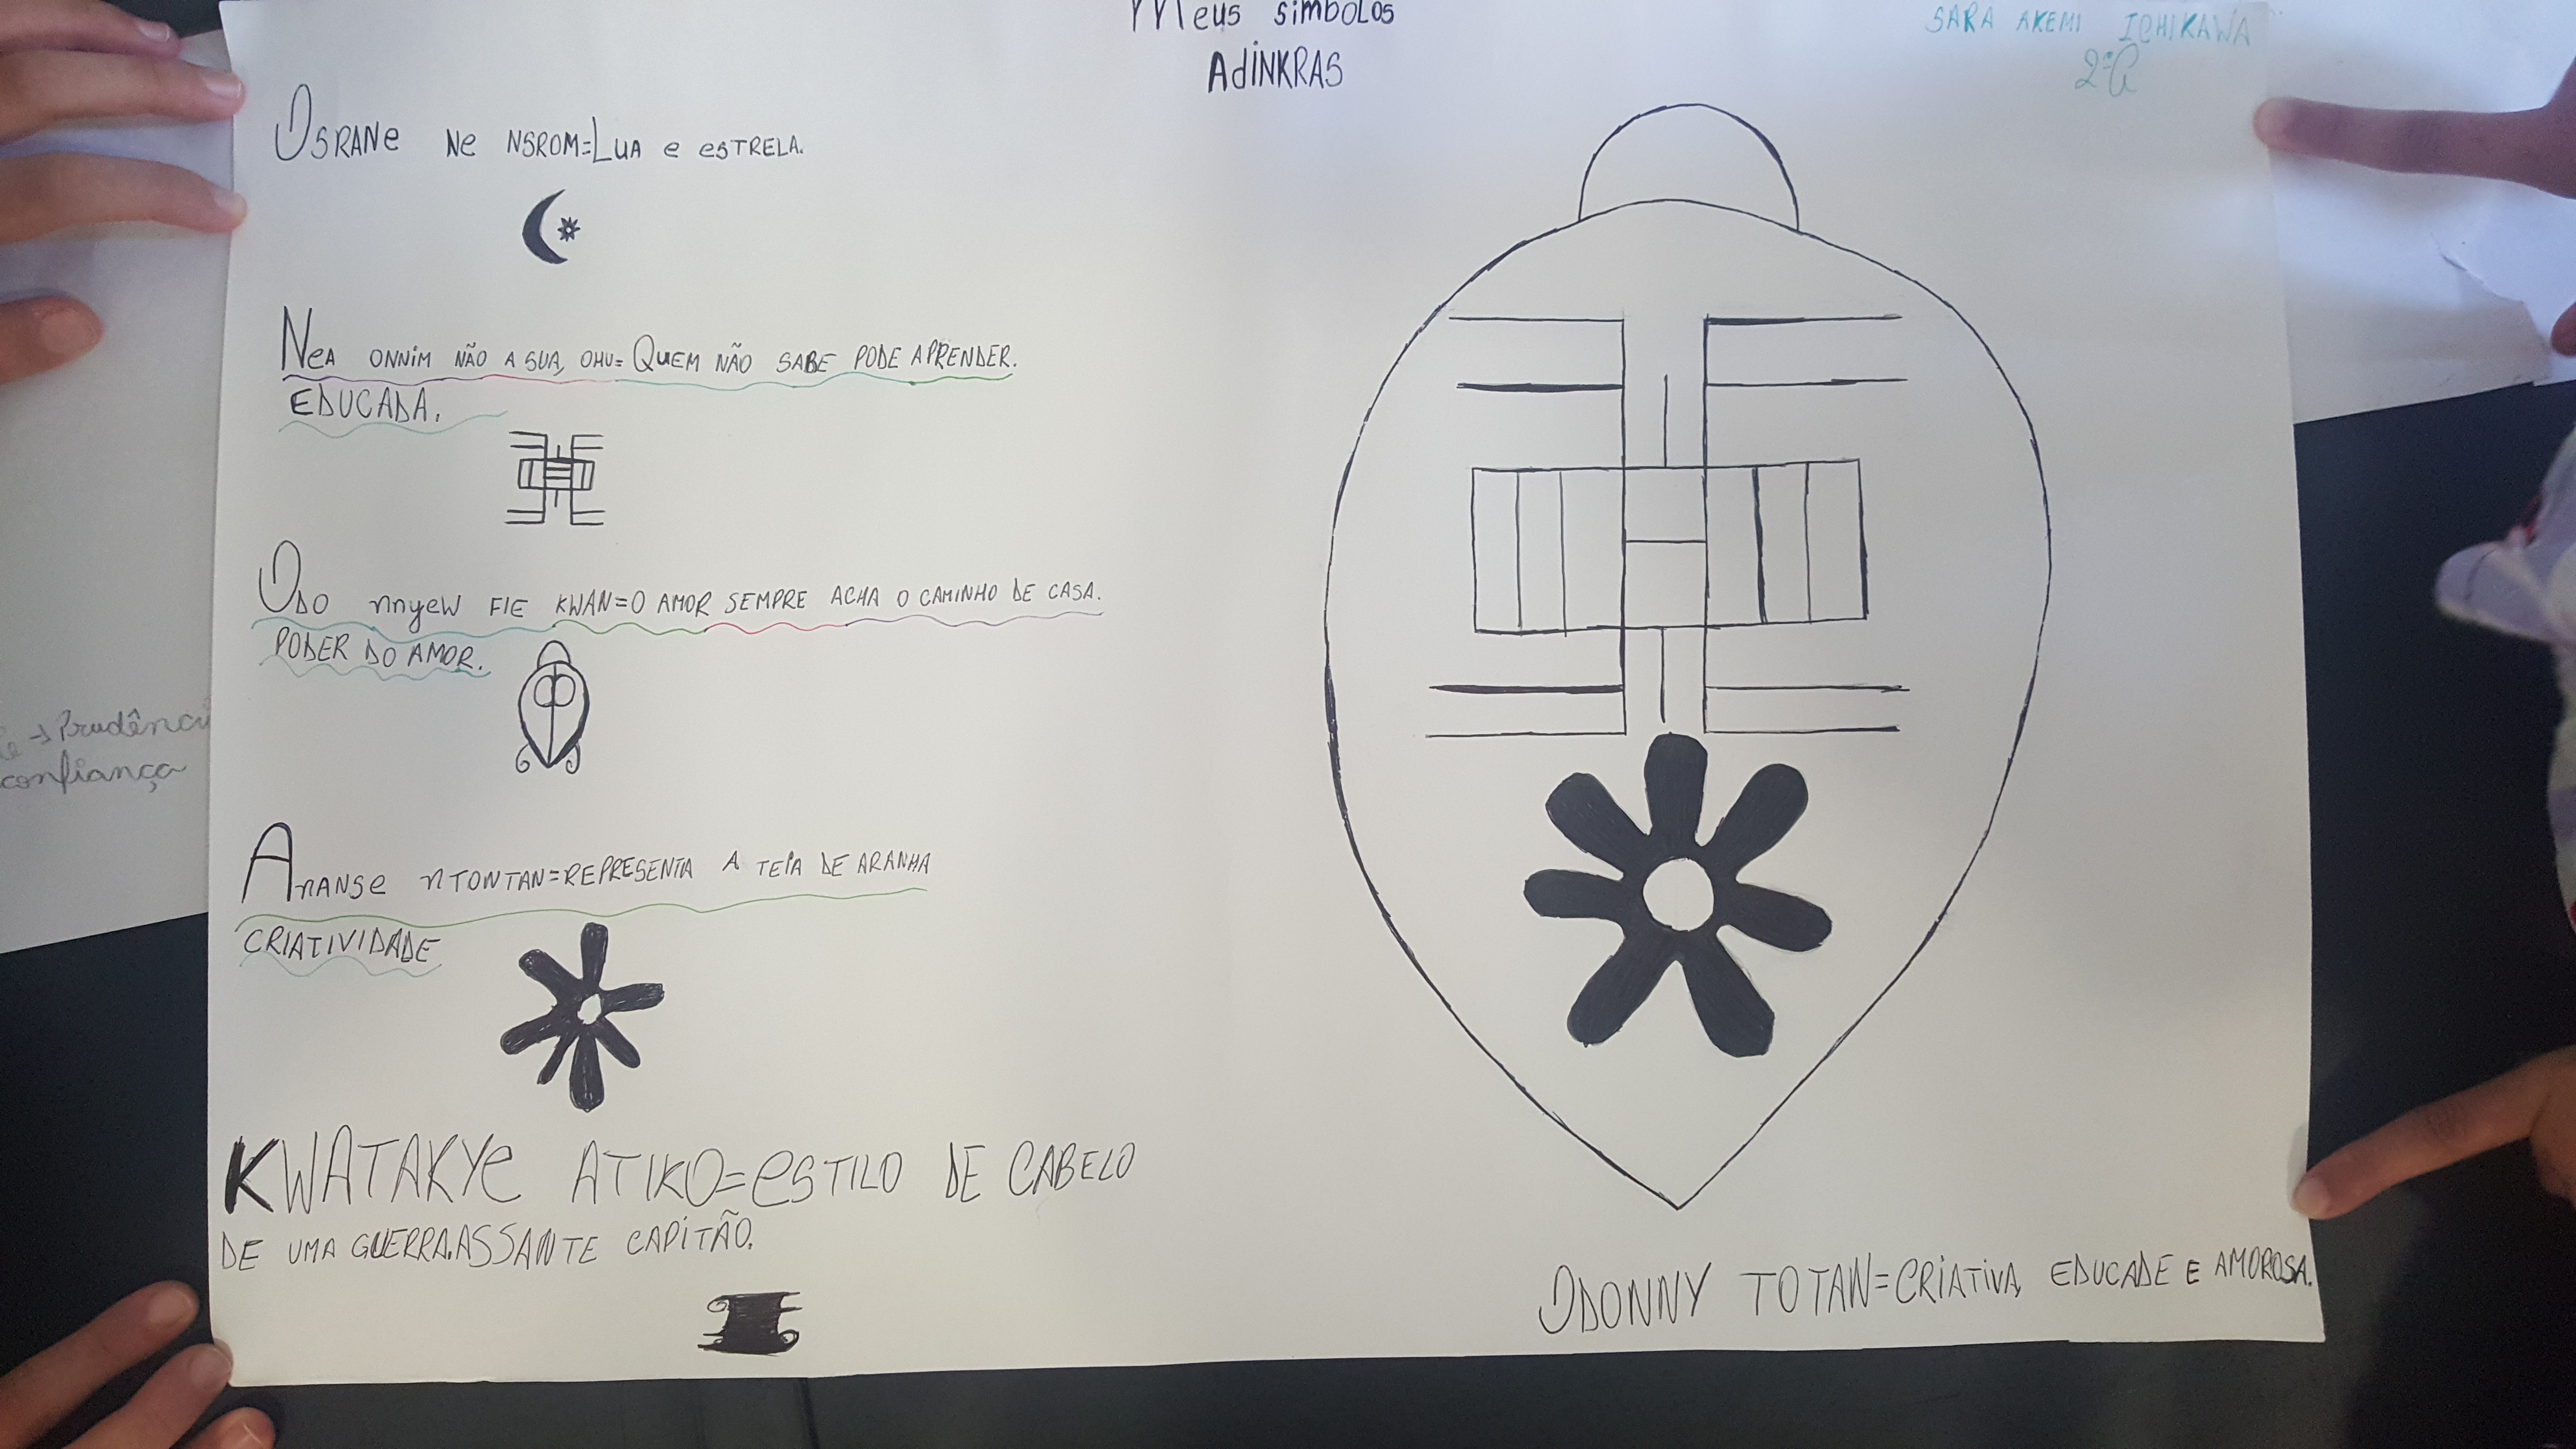 Meus simbolos
Adinkras
SARA AKEMI ICHIKAWA
2ºA
Osrane ne nsrom=Lua e estrela.
Nea onnim não a sua, ohu=Quem não sabe pode aprender.
Educada.
Odo nnyew fie kwan=o amor sempre acha o caminho de casa.
Poder do amor.
Ananse ntontan=representa a teia de aranha
Criatividade
Kwatakye atiko=estilo de cabelo
de uma guerra.assante capitão.
Odonny totan=criativa, educade e amorosa.
→ Prudência
confiança